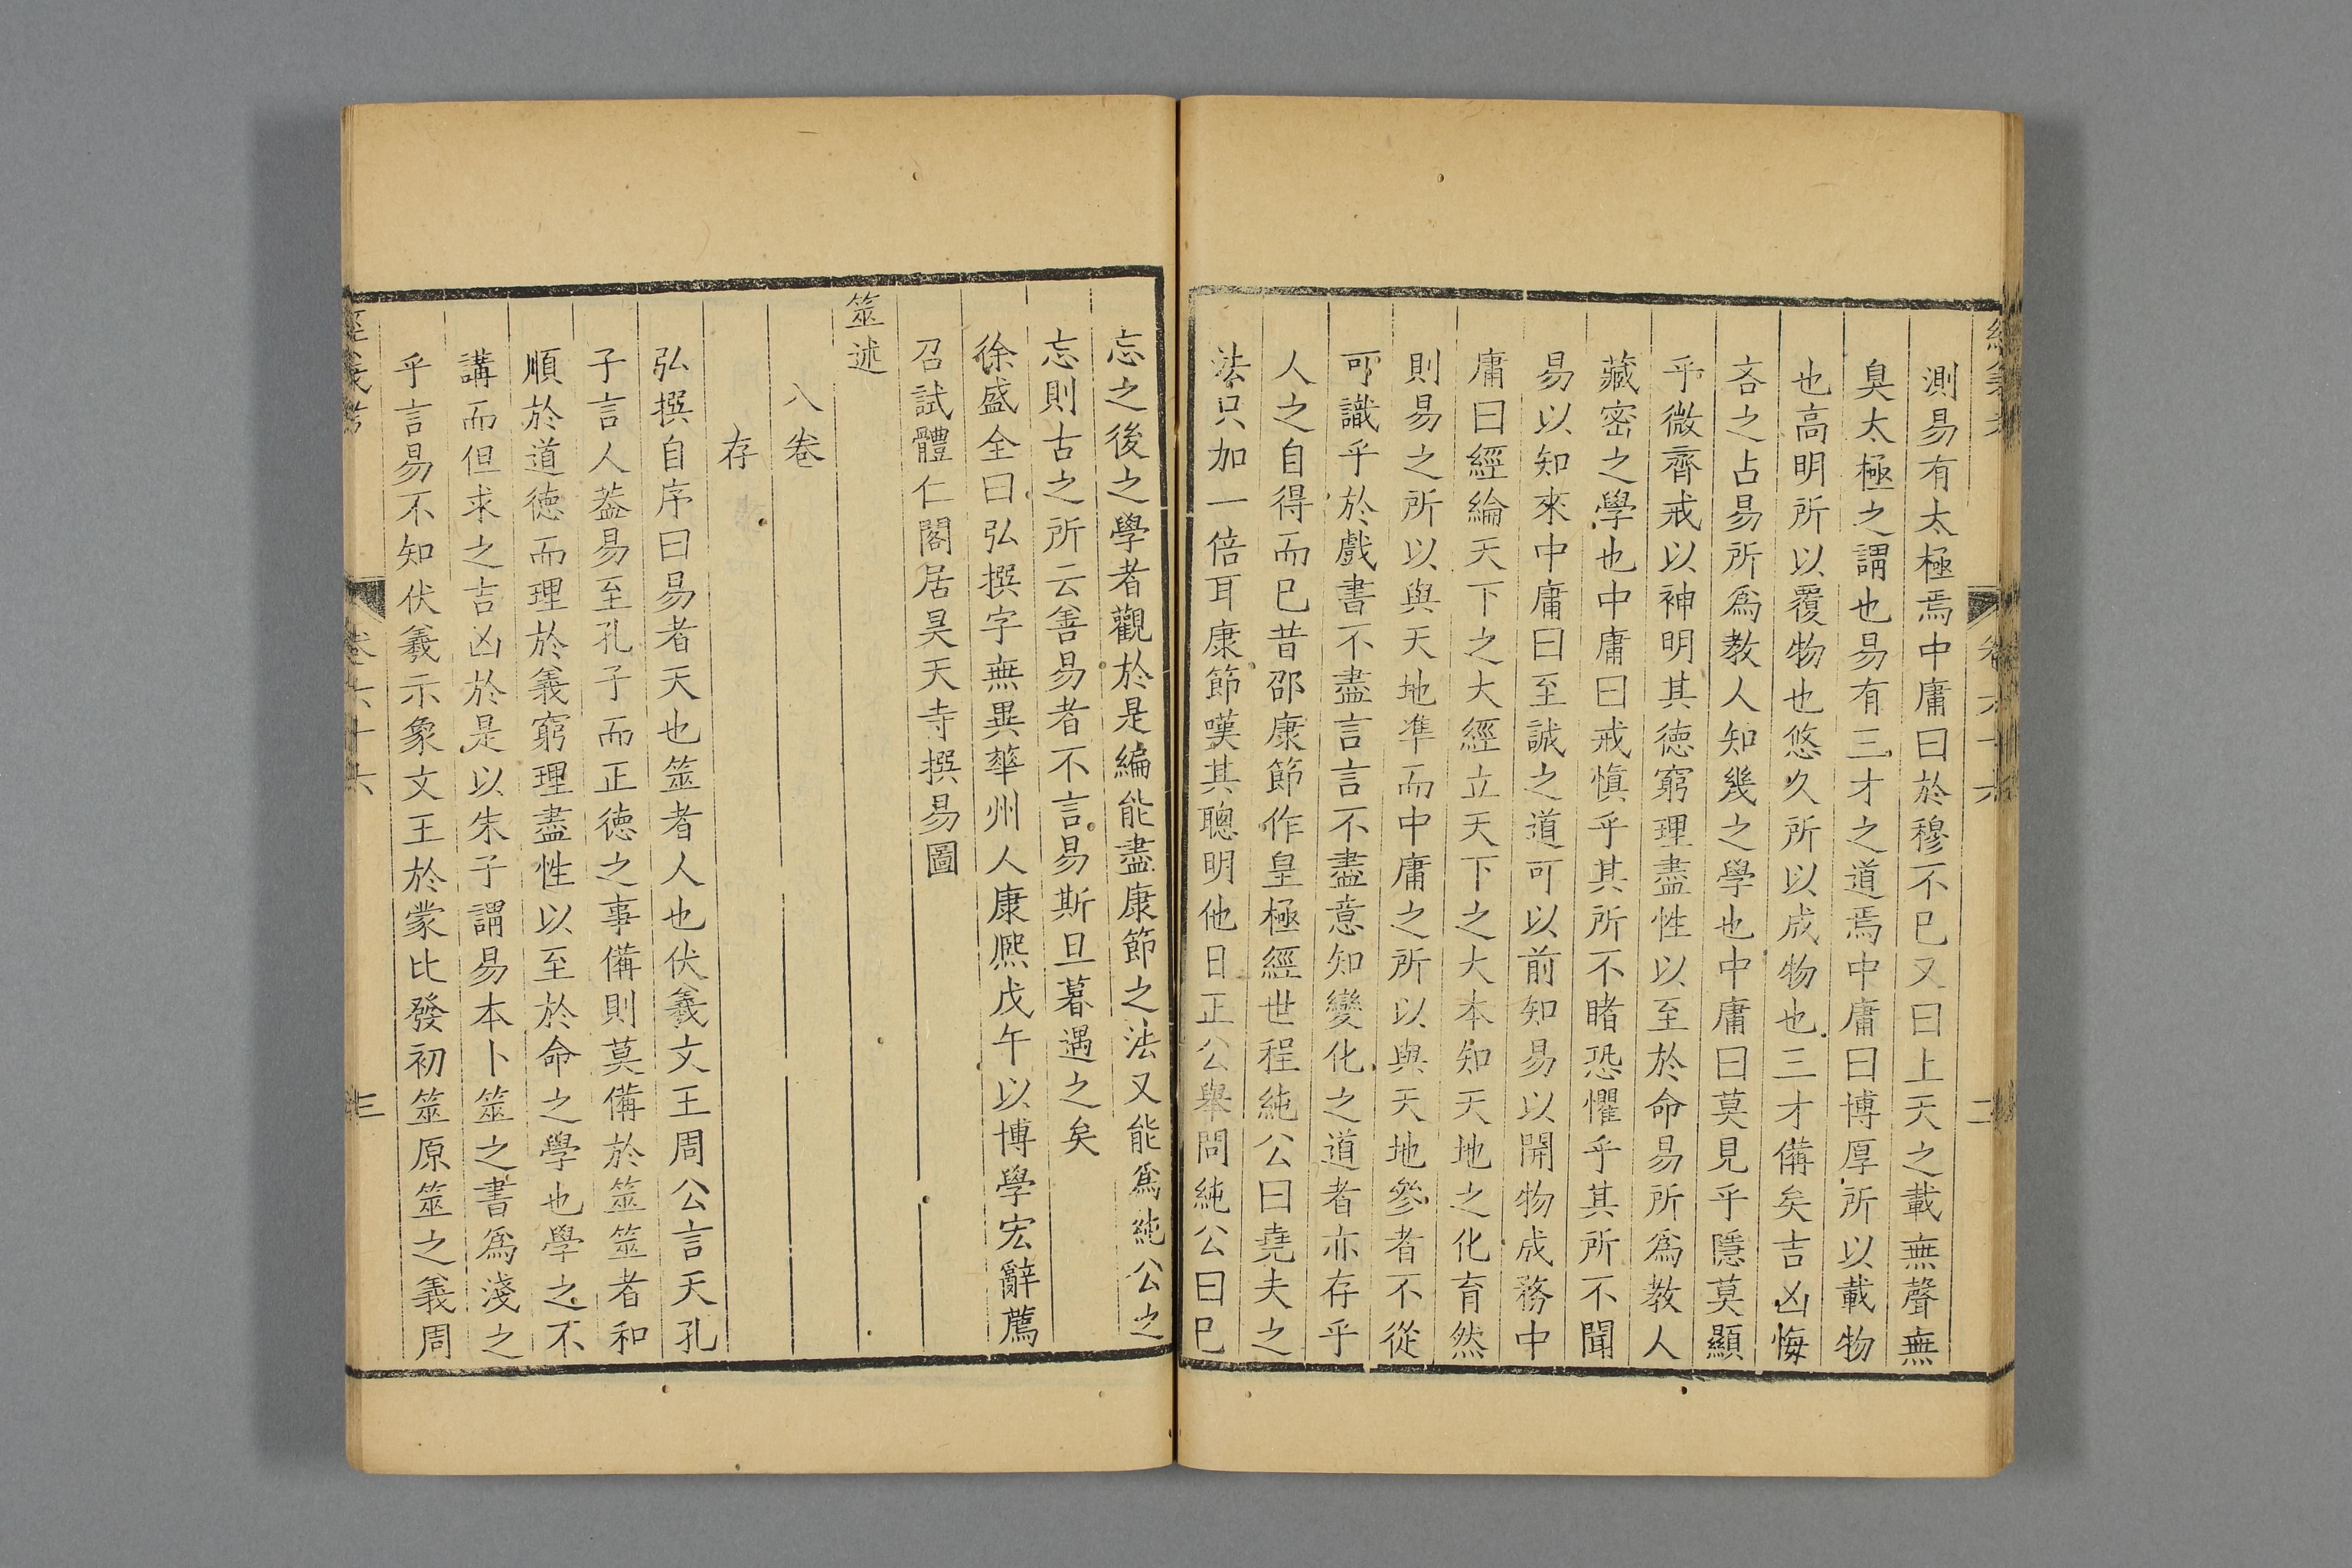 測易有太極焉中庸曰於穆不已又曰上天之載無聲無
臭太極之謂也易有三才之道焉中庸曰博厚所以載物
也高明所以覆物也悠久所以成物也三才備矣吉凶悔
吝之占易所爲教人知幾之學也中庸曰莫見乎隱莫顯
乎微齊戒以神明其德窮理盡性以至於命易所爲教人
藏密之學也中庸曰戒慎乎其所不睹恐懼乎其所不聞
易以知來中庸曰至誠之道可以前知易以開物成務中
庸曰經綸天下之大經立天下之大本知天地之化育然
則易之所以與天地準而中庸之所以與天地參者不從
可識乎於戲書不盡言言不盡意知變化之道者亦存乎
人之自得而已昔邵康節作皇極經世程純公曰堯夫之
法只加一倍耳康節嘆其聰明他日正公舉問純公曰已
忘之後之學者觀於是編能盡康節之法又能爲純公之
忘則古之所云善易者不言易斯旦暮遇之矣
徐盛全曰弘撰字無異華州人康熙戊午以博學宏辭薦
召試體仁閣居昊天寺撰易圖
筮述
八卷
存
弘撰自序曰易者天也筮者人也伏羲文王周公言天孔
子言人葢易至孔子而正德之事備則莫備於筮筮者和
順於道德而理於義窮理盡性以至於命之學也學之不
講而但求之吉凶於是以朱子謂易本卜筮之書爲淺之
乎言易不知伏羲示象文王於蒙比發初筮原筮之義周
經義考
卷六十六
三